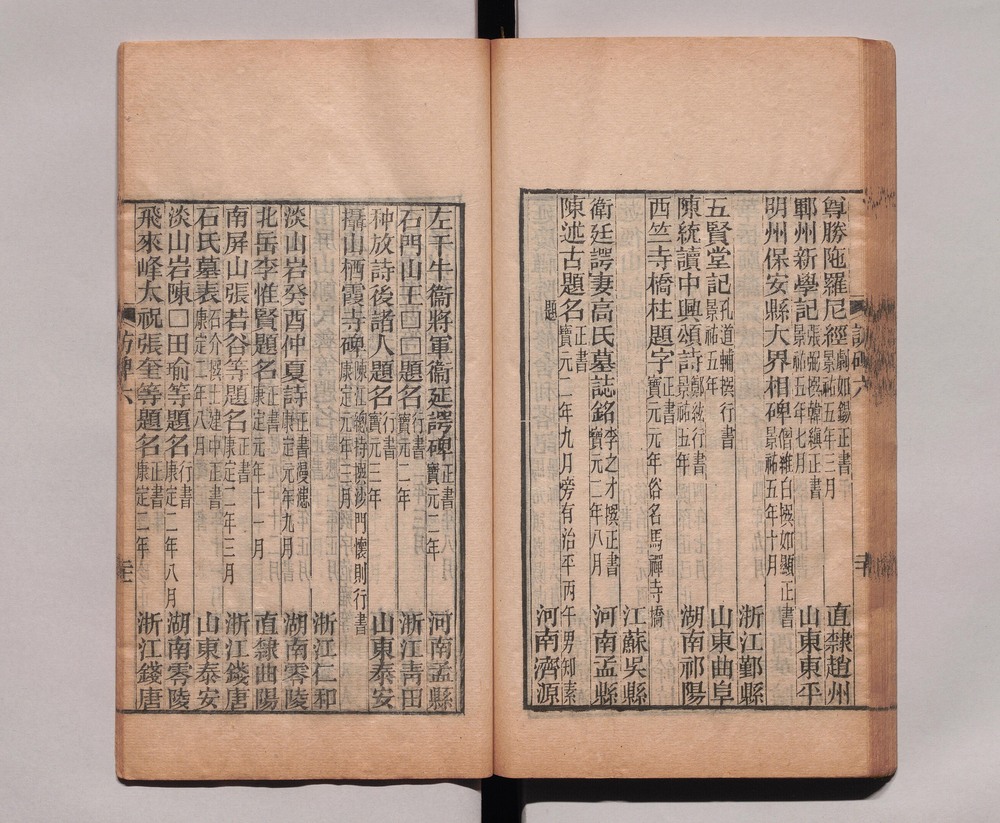 尊勝陁羅尼經 劇如錫正書 景祐五年三月 直隸趙州
鄆州新學記 張弼撰韓縝正書 景祐五年七月 山東東平
明州保安縣大界相碑 僧維白撰如顯正書 景祐五年十月
浙江鄞縣
五賢堂記 孔道輔撰行書 景祐五年 山東曲阜
陳統讀中興頌詩 鄭紘行書 景祐五年 湖南祁陽
西竺寺橋柱題字 正書 寶元元年俗名馬禪寺橋
江蘇吳縣
衛廷諤妻高氏墓誌銘 李之才撰正書 寶元二年八月 河南孟縣
陳述古題名 正書 寶元二年九月旁有治平丙午男知素題 河南濟源
訪碑六
左千牛衞將軍衞廷諤碑 正書 寶元二年 河南孟縣
石門山王囗囗題名 行書 寶元二年 浙江青田
种放詩後諸人題名 行書 寶元三年 山東泰安
攝山栖霞寺碑 陳江總持撰沙門懷則行書 康定元年三月
浙江仁和
淡山岩癸酉仲夏詩 正書漫漶 康定元年九月 湖南零陵
北岳李惟賢題名 正書 康定元年十一月 直隸曲陽
南屏山張若谷等題名 正書 康定二年三月 浙江錢唐
石氏墓表 石介撰士建中正書 康定二年八月 山東泰安
淡山岩陳囗田瑜等題名 行書 康定二年八月 湖南零陵
飛來峰太祝張奎等題名 正書 康定二年 浙江錢唐
訪碑六